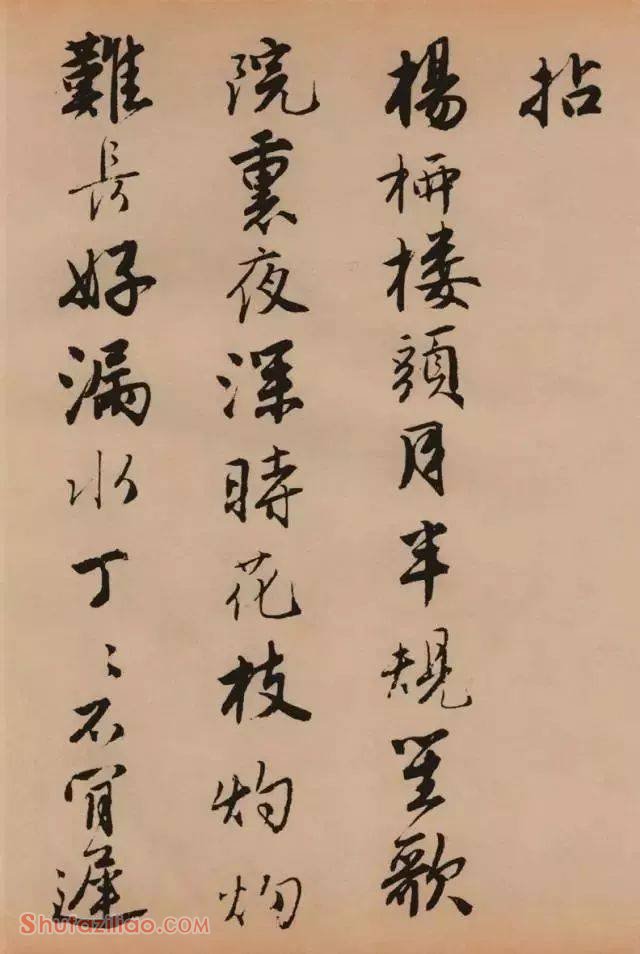 拈
楊栁楼頭月半規笙歌
院裏夜深時花枝灼灼
難長好漏水丁〻不肎遲
Shufaziliao.com